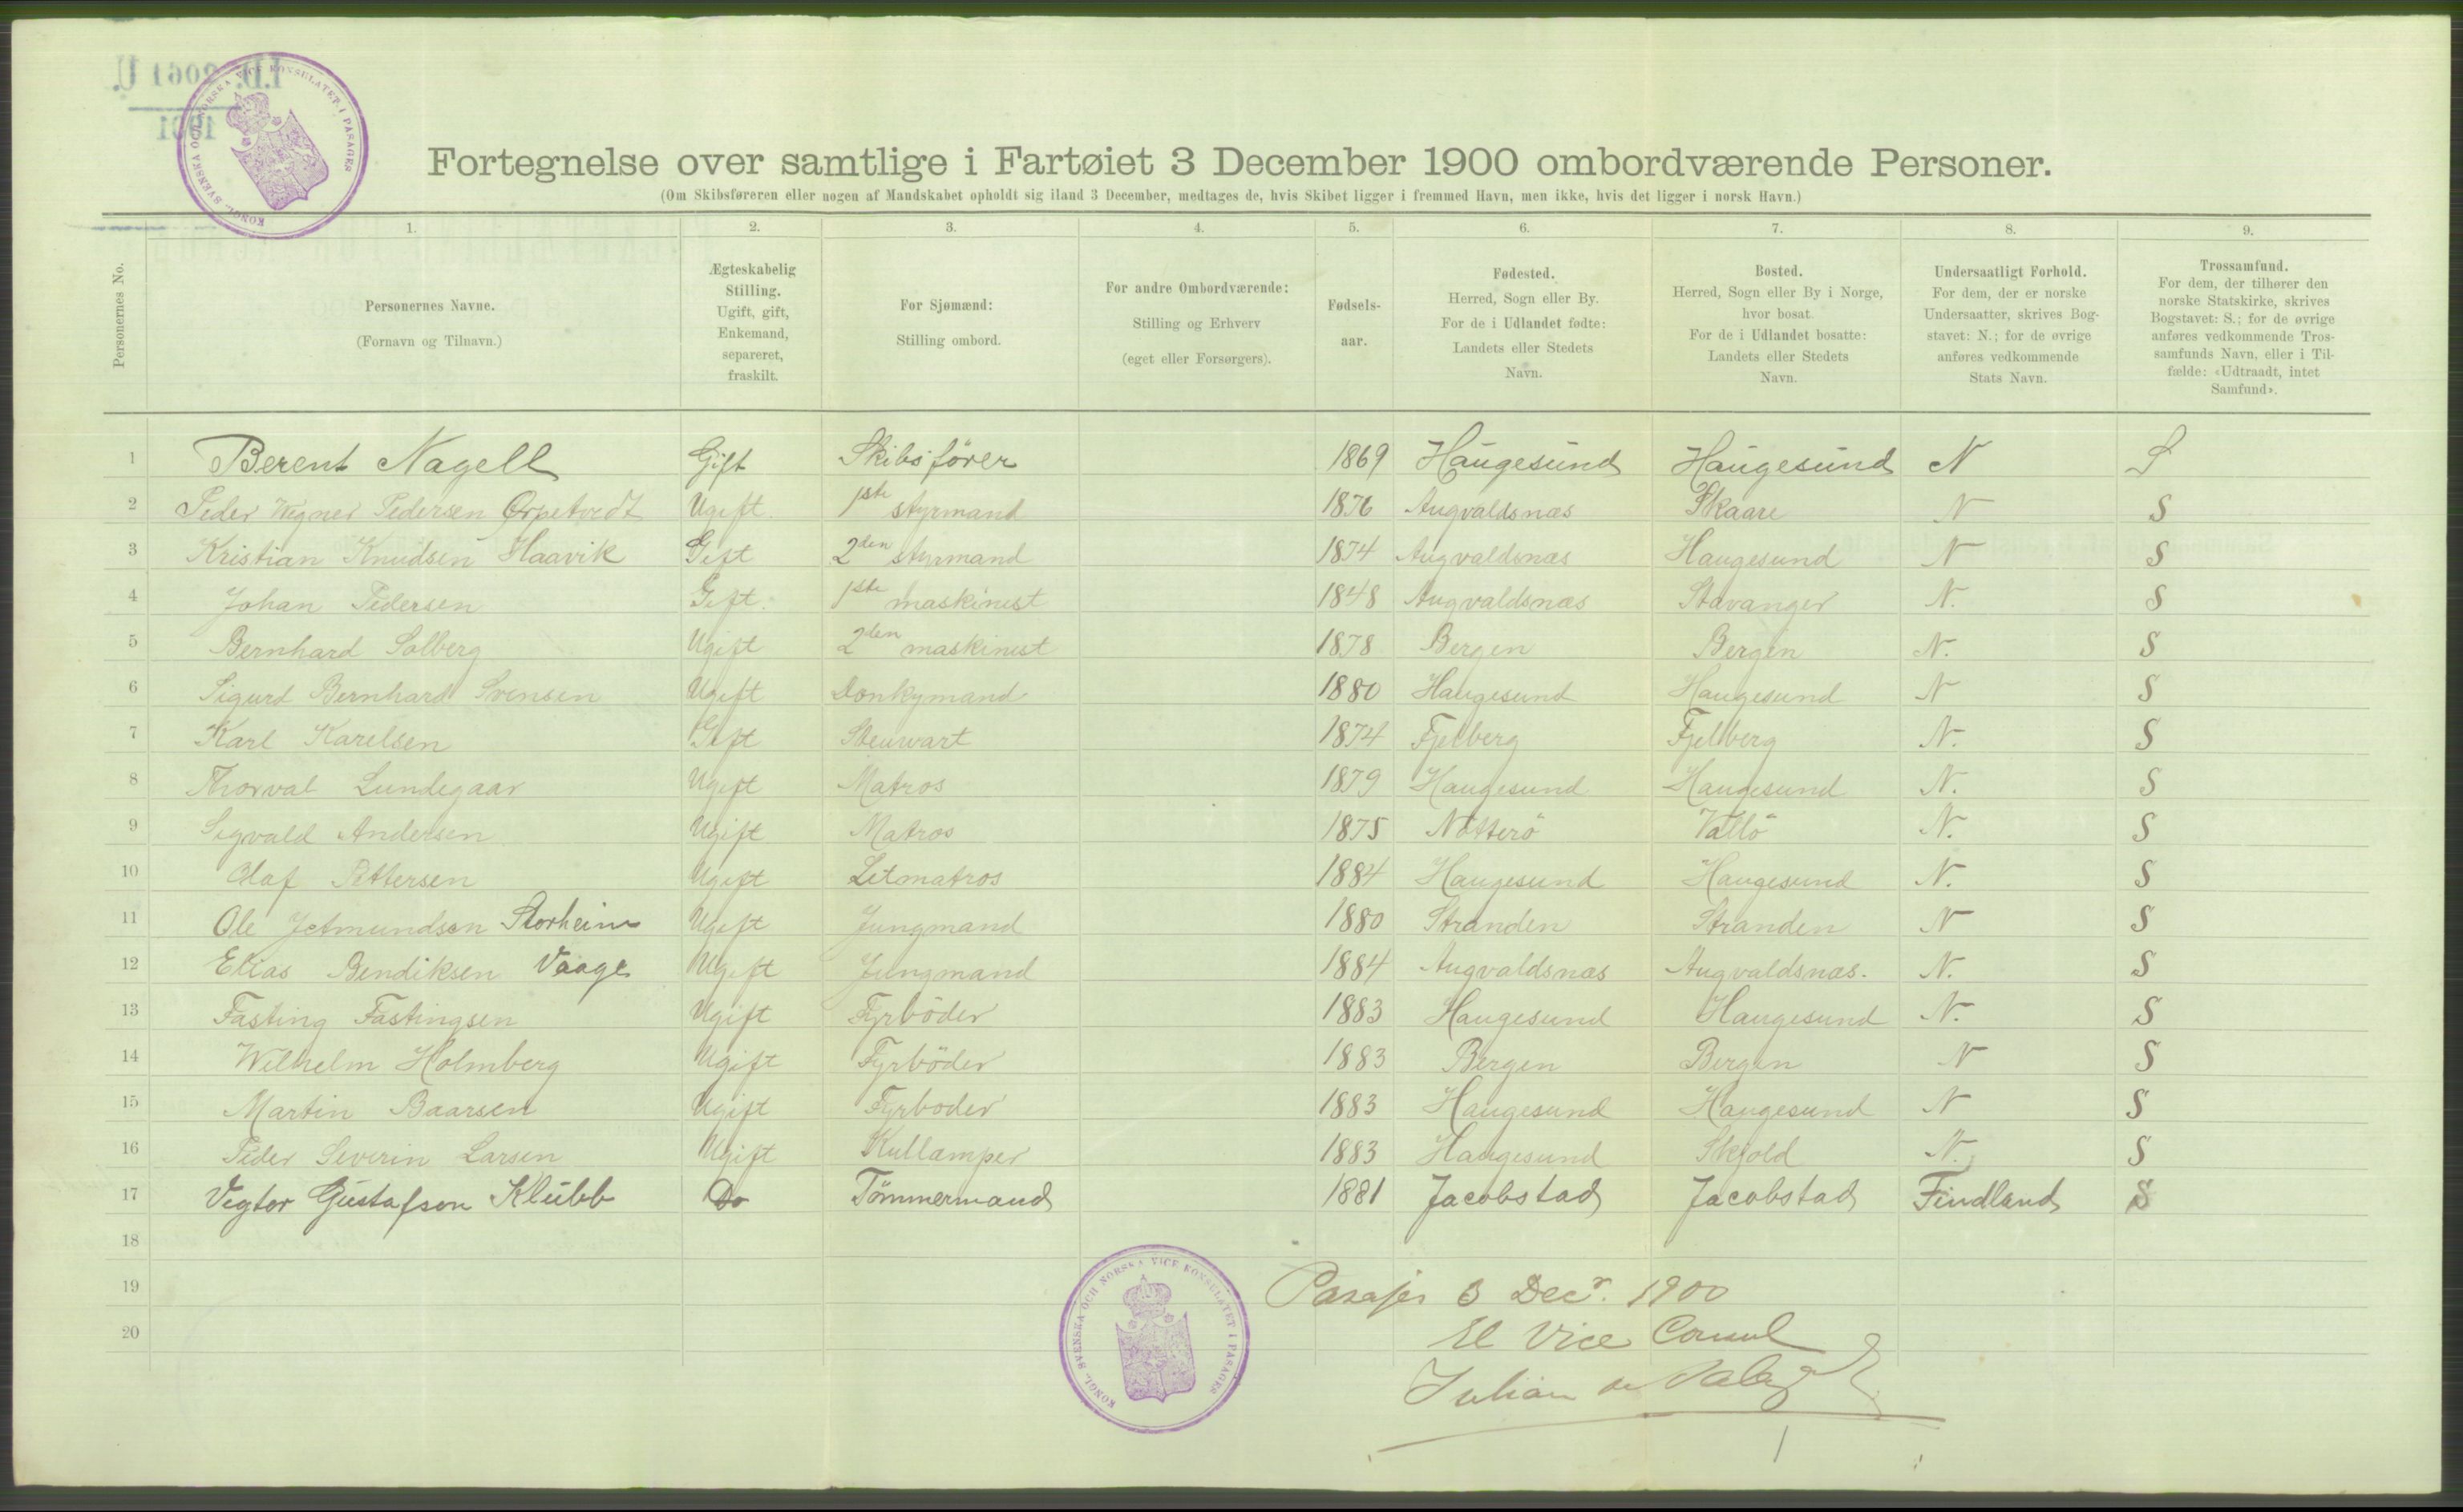 KONGL. SVENSKA OCH NORSKA VICE KONSULATET I PASAGES
Fortegnelse over samtlige i Fartøiet 3 December 1900 ombordværende Personer.
(Om Skibsføreren eller nogen af Mandskabet opholdt sig iland 3 December, medtages de, hvis Skibet ligger i fremmed Havn, men ikke, hvis det ligger i norsk Havn.)
1. 2. 3. 4. 5. 6. 7. 8. 9.
Personernes No.
Personernes Navne.
(Fornavn og Tilnavn.)
Ægteskabelig
Stilling.
Ugift, gift,
Enkemand,
separeret,
fraskilt.
For Sjømænd:
Stilling ombord.
For andre Ombordværende:
Stilling og Erhverv
(eget eller Forsørgers).
Fødsels-
aar.
Fødested.
Herred, Sogn eller By.
For de i Udlandet fødte:
Landets eller Stedets
Navn.
Bosted.
Herred, Sogn eller By i Norge,
hvor bosat.
For de i Udlandet bosatte:
Landets eller Stedets
Navn.
Undersaatligt Forhold.
For dem, der er norske
Undersaatter, skrives Bog-
stavet: N.; for de øvrige
anføres vedkommende
Stats Navn.
Trossamfund.
For dem, der tilhører den
norske Statskirke, skrives
Bogstavet: S.; for de øvrige
anføres vedkommende Tros-
samfunds Navn, eller i Til-
fælde: «Udtraadt, intet
Samfund».
1 Berent Nagell Gift Skibsförer 1869 Haugesund Haugesund N S
2 Peder Wegner Pedersen Ørpetvedt Ugift. 1ste styrmand 1876 Augvaldsnæs Skaare N S
3 Kristian Knudsen Haavik Gift 2den styrmand 1874 Augvaldsnæs Haugesund N S
4 Johan Pedersen Gift. 1ste maskinist 1848 Augvaldsnæs Stavanger N. S
5 Bernhard Solberg Ugift 2den maskinist 1878 Bergen Bergen N. S
6 Sigurd Bernhard Svensen Ugift Donkymand 1880 Haugesund Haugesund N S
7 Karl Karelsen Gift Steuwart 1874 Fjelberg Fjelberg N. S
8 Thorval Lundegaar Ugift Matros 1879 Haugesund Haugesund N. S
9 Sigvald Andersen Ugift Matros 1875 Nötterö Vallö N. S
10 Olaf Pettersen Ugift Letmatros 1884 Haugesund Haugesund N. S
11 Ole Jetmundsen Storheim Ugift Jungmand 1880 Stranden Stranden N S
12 Elias Bendiksen Vaage Ugift Jungmand 1884 Augvaldsnæs Augvaldsnæs. N. S
13 Fasting Fastingsen Ugift Fyrböder 1883 Haugesund Haugesund N. S
14 Wilhelm Holmberg Ugift Fyrböder 1883 Bergen Bergen N S
15 Martin Baarsen Ugift Fyrboder 1883 Haugesund Haugesund N S
16 Peder Severin Larsen Ugift Kullæmper 1883 Haugesund Skjold N. S
17 Vegtor Gustafson Klubb Do Tömmermand 1881 Jacobstad Jacobstad Findland S
18
19 Pasajes 3 Decr. 1900
20 El Vice Consul
Julian de
KONGL. SVENSKA OCH NORSKA VICE KONSULATET I PASAGES